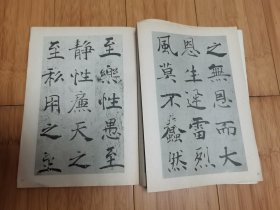 之無恩而大
恩生迅雷烈
風莫不蠢然
至樂性愚至
静性廉天之
至私用之至